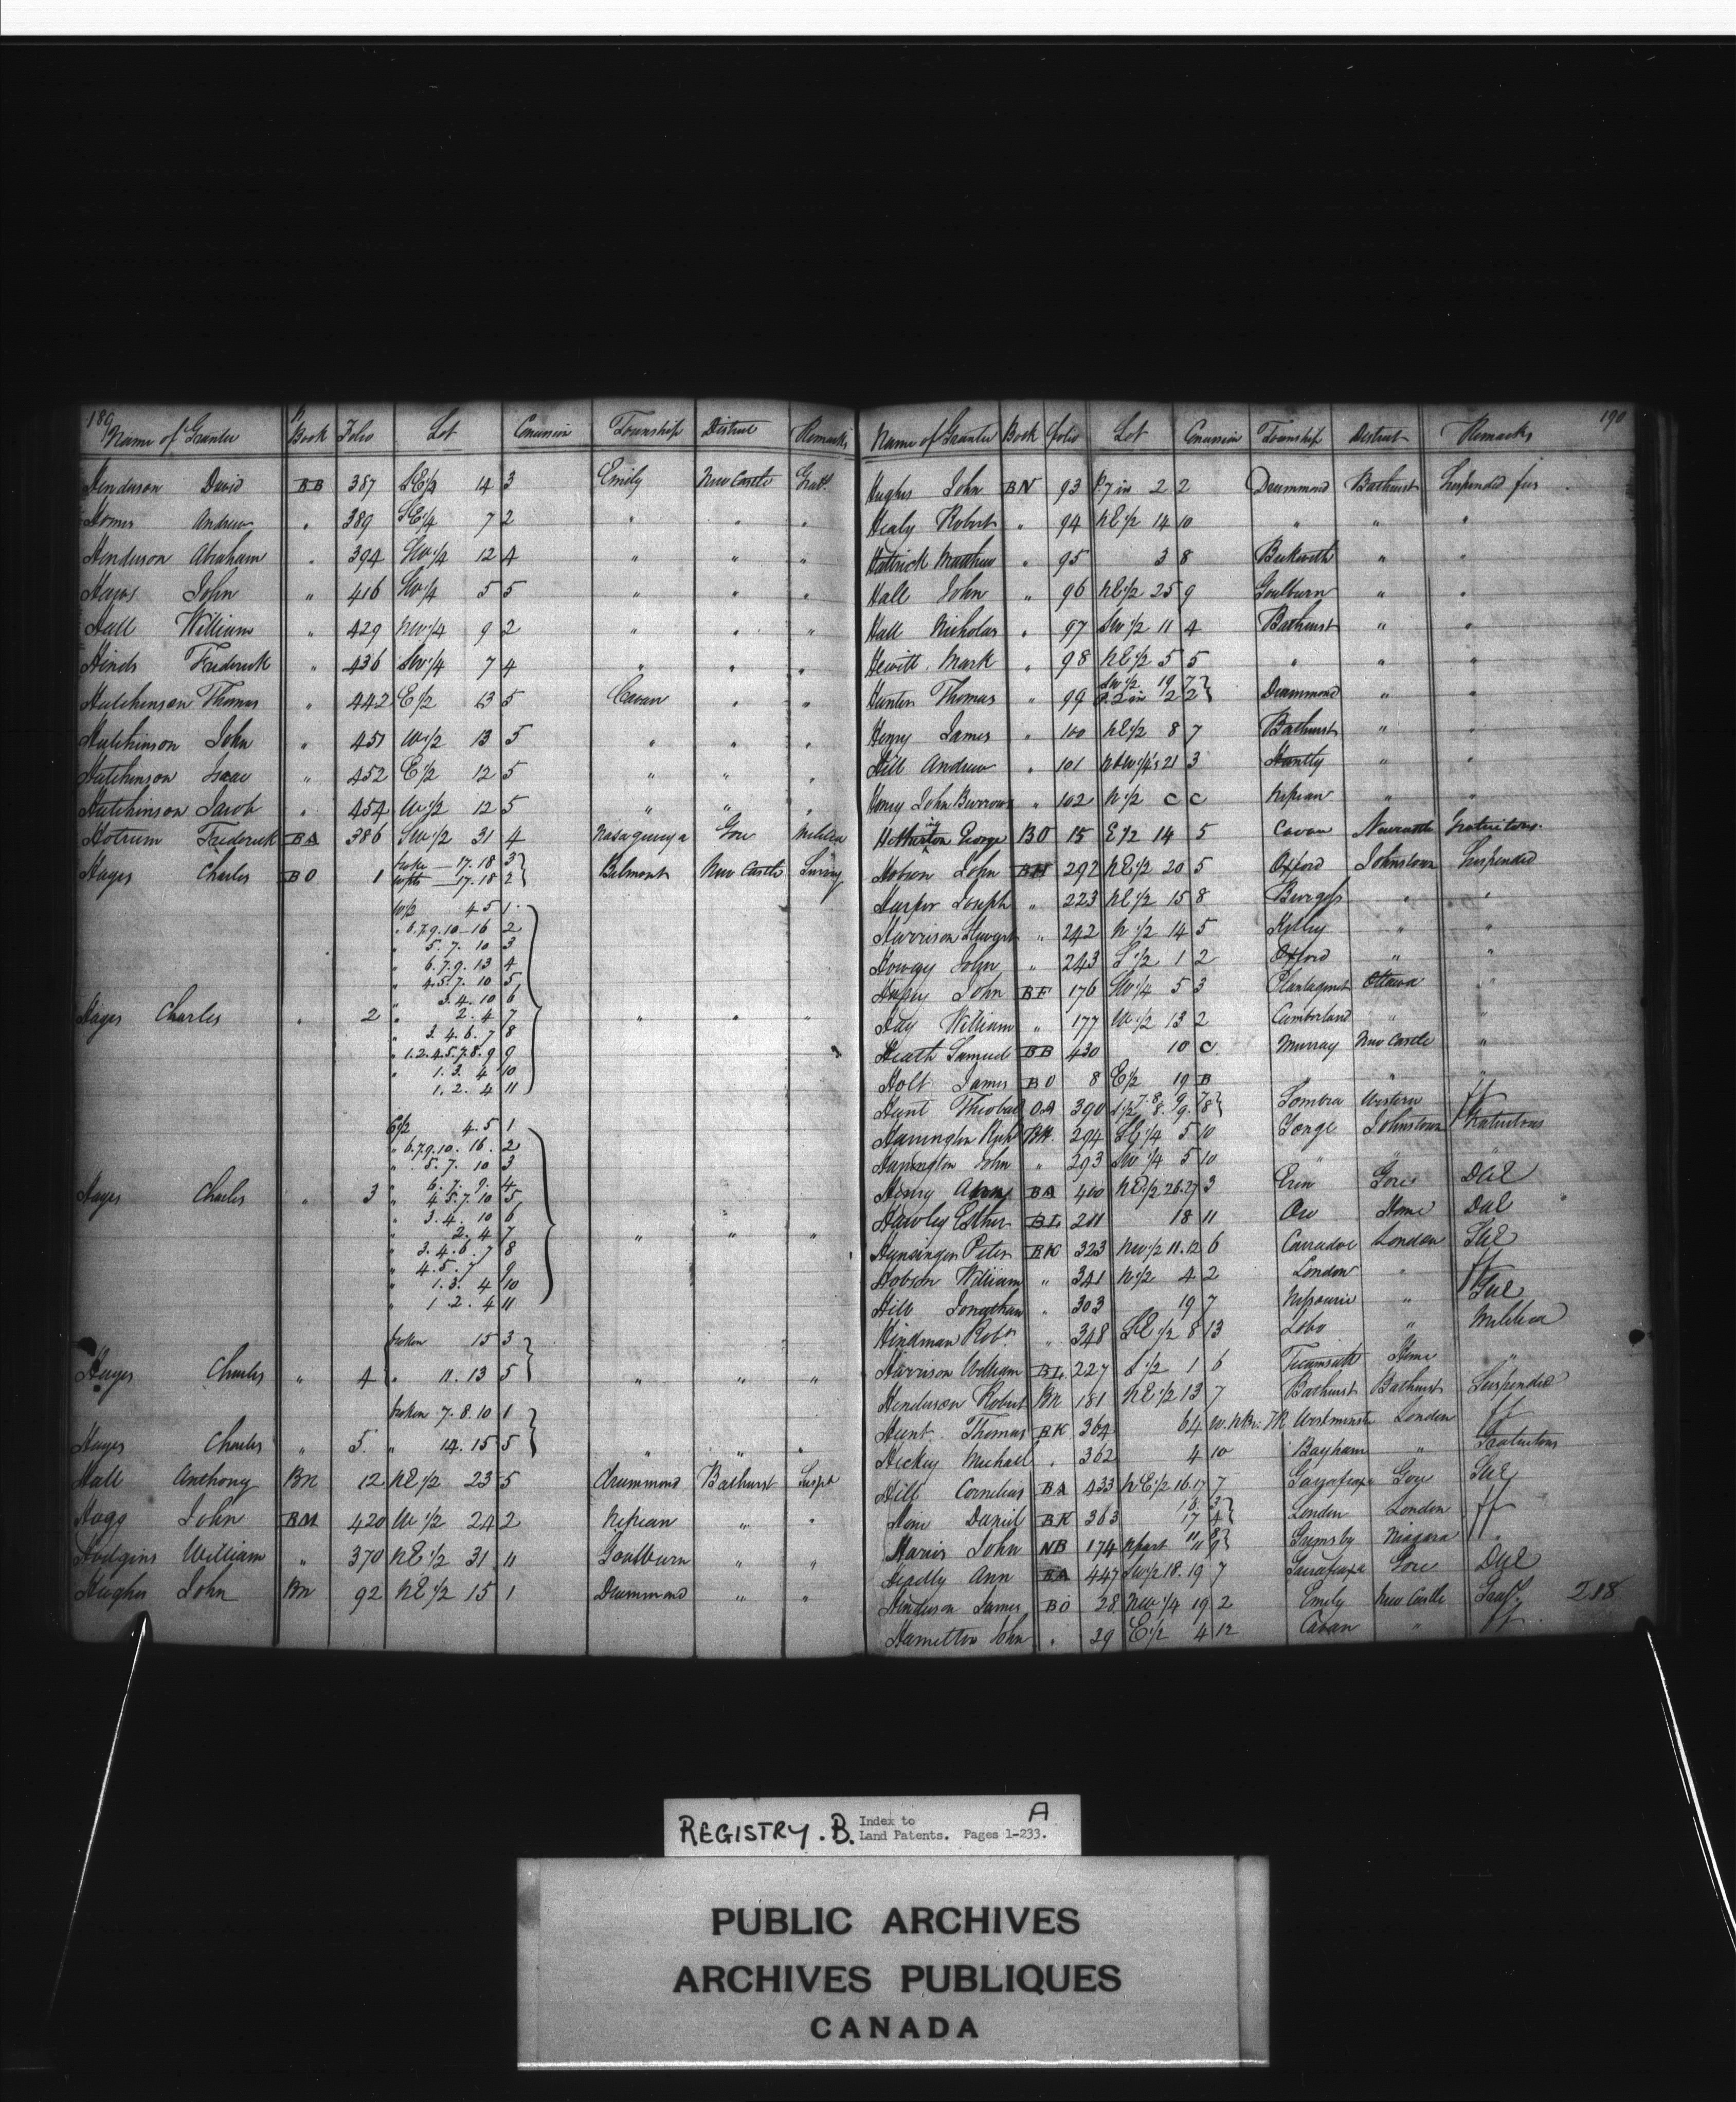 189
Name of Grantee Book Folio Lot Concession Township District Remarks
Henderson David BB 387 SE 1/4 14 3 Emily New Castle Grats.
Homes Andrew " 389 SE 1/4 7 2 " " "
Henderson Abraham " 394 SW 1/4 12 4 " " "
Haws John " 416 SW 1/4 5 5 " " "
Hall William " 429 NW 1/4 9 2 " " "
Hinds Frederick " 436 SW 1/4 7 4 " " "
Hutchinson Thomas " 442 E 1/2 13 5 Cavan " "
Hutchinson John " 451 W 1/2 13 5 " " "
Hutchinson Isaac " 452 E 1/2 12 5 " " "
Hutchinson Jacob " 454 W 1/2 12 5 " " "
Hotrum Frederick BA 386 SW 1/2 31 4 Nasagiweya Gore Militia
Hayes Charles BO 1 broke 17.18 3 Belmont New Castle Survey
17.18 2
W 1/2 4 5 1
" 6.7.9.10-16 2
" 5. 7. 10 3
" 6.7.9. 13 4
" 4.5.7. 10 5
" 3.4. 10 6
Hayes Charles " 2 " 2. 4 7 " " "
" 3 4. 6. 7 8
" 1.2.4.5.7.8.9 9
" 1. 3. 4 10
1. 2. 4 11
E 1/2 4. 5 1
" 6.7.9.10. 16. 2
" 5. 7. 10 3
" 6. 7. 9. 4
Hayes Charles " 3 " 4 5.7.10 5
" 3.4. 10 6
" 2. 4 7 " " "
" 3. 4. 6. 7 8
" 4. 5. 7 9
" 1. 3. 4 10
" 1 2. 4 11
broken 15 3
Hayes Charles " 4 " 11. 13 5 " " "
broken 7. 8. 10 1
Hayes Charles " 5. " 14. 15 5 " " "
Hall Anthony BN 12 NE 1/2 23 5 Drummond Bathurst Suspd
Hagg John BM 420 W 1/2 24 2 Nepean " "
Hodgins William " 370 NE 1/2 31 11 Goulburn " "
Hughes John BN 92 NE 1/2 15 1 Drummond " "
190
Name of Grantee Book folio Lot Concession Township District Remarks
Hughes John BN 93 P. 7 in 2 2 Drummond Bathurst Suspended fees
Healy Robert " 94 NE 1/2 14 10 " " "
Hattrick Matthew " 95 3 8 Beckwith " "
Hall John " 96 NE 1/2 25 9 Goulburn " "
Hall Nicholas " 97 SW 1/2 11 4 Bathurst " "
Hewitt Mark " 98 NE 1/2 5 5 " " "
SW 1/2 19 7
Hunter Thomas " 99 P. 2 in 2 2 Drummond " "
Henry James " 100 NE 1/2 8 7 Bathurst " "
Hill Andrew " 101 21 3 Huntly " "
Honey John Burrows " 102 N 1/2 C C Nepean " "
Hetherington George BO 15 E 1/2 14 5 Cavan Newcastle Gratuitous
Hobson John BH 292 NE 1/2 20 5 Oxford Johnstown Suspended
Harper Joseph " 223 NE 1/2 15 8 Burgess " "
Harrison Stewart " 242 N 1/2 14 5 Kitley " "
Howay John " 243 S 1/2 1 2 Oxford " "
John BF 176 SW 1/4 5 3 Plantagenet Ottawa "
Hay William " 177 W 1/2 13 2 Cumberland " "
Heath Samuel BB 430 10 C Murray New Castle "
Holt James BO 8 E 1/2 19 B " " "
Hunt Theobald OA 390 S 1/2 7. 8. 9. 7 Sombra Western ff
8. 9. 8
Harrington Richd BH. 294 SE 1/4 5 10 Yonge Johnstown Gratuitous
Harrington John " 293 SW 1/4 5 10 " " "
Henry BA 400 NE 1/2 26.27 3 Erin Gore DUE
Hawley Esther BL 211 18 11 Oro Home DUE
Hunsinger Peter BK 323 NW 1/2 11.12 6 Carradoc London SUE
Hobson William " 341 N 1/2 4 2 London " ff
Hill Jonathan " 303 19 7 Nissouri " SUE
Hindman Robt " 348 SE 1/2 8 13 Lobo " Militia
Harrison William BL 227 S 1/2 1 6 Tecumseth Home "
Henderson Robert BN 181 NE 1/2 13 7 Bathurst Bathurst Suspended
Hunt Thomas BK 364 64 W. N Br. TR Westminster London ff
Hickey Michael " 362 4 10 Bayham " Gratuitous
Hill Cornelius BA 433 NE 1/2 16.17 7 Garafraxa Gore SUE
Daniel BK 363 16 3 London London ff
17 4
Harris John NB 174 N part 11 8 Grimsby Niagara "
11 9
Headly Ann BA 447 SW 1/2 18. 19 7 Garafraxa Gore DUE
Henderson James BO 28 NW 1/4 19 2 Emily New Castle Grats. 218
Hamilton John " 29 E 1/2 4 12 Cavan " ff
REGISTRY. B. Index to Land Patents. Pages 1-233. A
PUBLIC ARCHIVES
ARCHIVES PUBLIQUES
CANADA